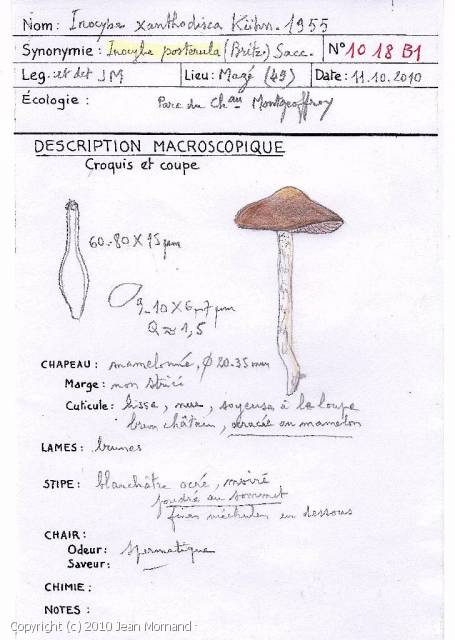 Nom: Inocybe xanthodisca Kühn. 1955
Synonymie: Inocybe posterula (Britz.) Sacc. N° 10 18 B1
Leg.: et det JM Lieu: Mazé (49) Date: 11.10.2010
Écologie: Parc du Chau Montgeoffroy
DESCRIPTION MACROSCOPIQUE
Croquis et coupe
60-80 X 15 µm
9-10 X 6-7 µm
Q ≈ 1,5
CHAPEAU: mamelonné, Ø 20-35 mm
Marge: non striée
Cuticule: lisse, nue, soyeuse à la loupe
brun châtain, ocracé au mamelon
LAMES: brunes
STIPE: blanchâtre ocré, moiré
poudré au sommet
fines méchules en dessous
CHAIR:
Odeur: spermatique
Saveur:
CHIMIE:
NOTES:
Copyright (c) 2010 Jean Mornand